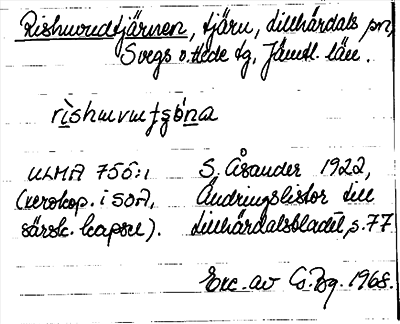 Rishuvudtjärnen, tjärn, Lillhärdals sn,
Svegs o. Hede tg, Jämtl. län.
ULMA 756:1 S. Åsander 1922,
(xerokop. i SOA, Ändringslistor till
särsk. kapsel). Lillhärdalsbladet, s. 77
Exc. av 1968.